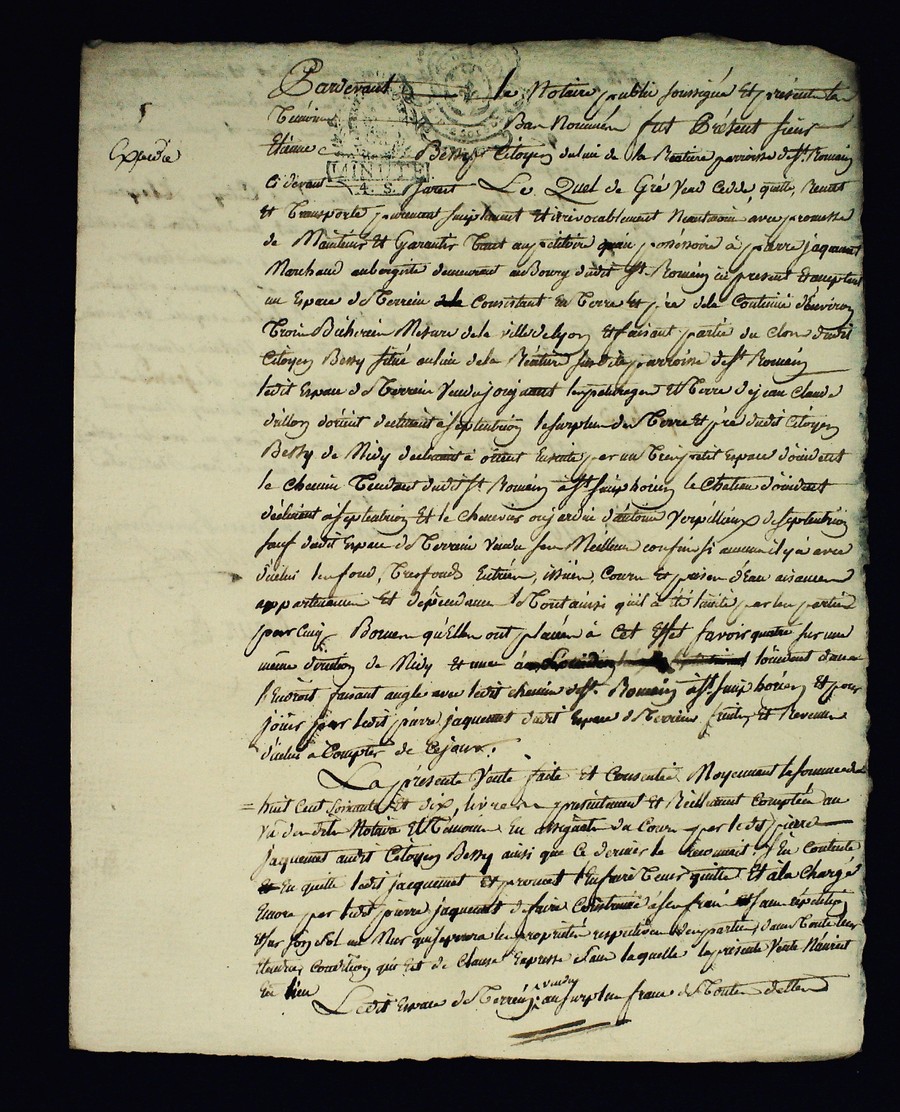 Pardevant le Notaire public soussigné Et présents les
Témoins Bas Nommés fut Présent sieur
Etienne Bessy Citoyen du lieu de la Réature parroisse de St. Romain
Expédié
MINUTE
4. S.
Cidevant jarest Le Quel de Gré Vend Cedde, quitte, Remet
Et Transporte purement simplement Et irrévocablement Neantmoin avec promesse
de Maintenir Et Garantir Tant au petitoire qu'au possessoire à pierre jaquemet
Marchand aubergiste demeurant au Bourg dudit St. Romain ici présent Et acceptant
un Espace de Terrein Consistant En Terre Et pré de la Contenue d'environ
Trois Bicherées Mesure de la ville de Lyon Et faisant partie du Clos dudit
Citoyen Bessy situé au lieu de la Réature susdite parroisse de St. Romain
ledit Espace de Terrein Vendu joignant les paturages Et Terre de jean Claude
d'orient declinant à septentrion le surplus des Terre Et pré dudit Citoyen
Bessy de Midy declinant à orient Ensuite par un Très petit Espace d'occident
le Chemin Tendant dudit St. Romain à St. simphorien le Chateau d'occident
déclinant à septentrion Et le Chenevier ou jardin d'antoine Verpillieux de septentrion
sauf dudit Espace de Terrein Vendu ses Meilleurs confins si aucun il y à avec
d'icelui les fond, Tresfonds Entrées, issües, Cours Et prises d'Eau aisances
appartenances Et dépendances Tout ainsi qu'il à été limité par les parties
par Cinq Bornes qu'Elles ont placées à Cet Effet savoir quatre sur une
même direction de Midy Et une à l'occident dans
l'Endroit faisant angle avec ledit chemin de St. Romain à St. simphorien Et pour
jouir par ledit pierre jaquemet dudit Espace de Terrein fruits Et Revenus
d'icelui à Compter de Cejour.
La présente Vente faite Et Consentie Moyennant la somme de
huit Cent soixante Et dix livres présentement Et Réellement Comptée au
Vü desdits Notaire Et Témoins En assignats du Cours par ledit pierre
jaquemet audit Citoyen Bessy ainsi que Ce dernier le Reconnait, s'En Contente
En quitte ledit jaquemet Et promet l'En faire Tenir quitte Et à la Charge
Encore par ledit pierre jaquemet de faire Construire à ses frais Et sans répétition
Et sur son sol un Mur qui séparera les propriétés respectives des parties dans Toute leur
étendue, Condition qui Est de Clause Expresse sans laquelle la présente Vente N'auroit
Eü lieu
Ledit Espace de Terrein vendu au surplus franc de Toutes dettes